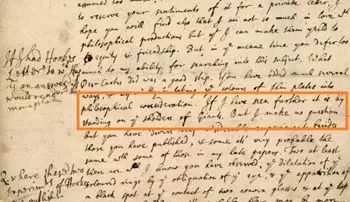 to reserve your sentiments of it for a private letter. I
hope you will find also that I am not so much in love with
philosophical production but yt I can make them yield to
equity & friendship. But, in ye meane time you defer too
If I had Hooks
Letter to
an answer
much to my ability for searching into this subject. What
Des-Cartes did was a good step. You have added much several
ways, & taking ye colours of thin plates into
philosophical consideration. If I have seen further it is by
standing on ye sholders of Giants. But I make no question
But you have divers very considerable experiments besides
those you have published, & some it's very probable the
same with some of those in my late papers. Two at least
I have these two
there are I know you have observed, ye dilatation of ye
coloured rings by ye obliquation of ye eye, & ye apparition of
a black spot at ye contact of two convex glasses & at ye top